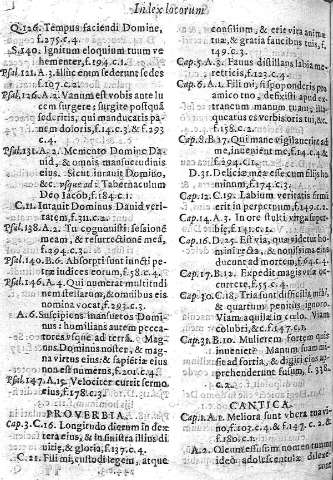 Index locorum
Q.126. Tempus faciendi Domine,
f.275.c.4.
S.140. Ignitum eloquium tuum ve
hementer, f.194.c.1.
Psal.121.A.3. Illic enim sederunt sedes
f.107.c.2.
Psal.126.A.2. Vanum est vobis ante lu
cem surgere; surgite postquã
sederitis, qui manducatis pa-
nem doloris, f.14.c.3. & f.293
c.4.
Psal.131.A.2. Memento Domine Da
vid, & omnis mansuetudinis
eius. Sicut iurauit Domino,
&c. vsque ad: Tabernaculum
Deo Iacob, f.184.c.1.
C.11. Iurauit Dominus Dauid veri
tatem, f.31.c.2.
Psal.138.A.2. Tu cognouisti sessionẽ
meam, & resurrectionẽ meã,
f.293.c.4.
Psal.140.B.6. Absorpti sunt iuncti pe-
træ iudices eorum, f.58.c.4.
Psal.146.A.4. Qui numerat multitudi
nem stellarum, & omnibus eis
nomina vocat, f.293.c.3.
A.6. Suscipiens mansuetos Domi
nus: humilians autem pecca-
tores vsque ad terrã. Mag-
nus Dominus noster, & mag-
na virtus eius: & sapiẽtiæ eius
non est numerus, f.201.c.4.
Psal.147.A.15. Velociter currit sermo
eius, f.178.c.3.
PROVERBIA.
Cap.3.C.16. Longitudo dierum in dex
tera eius, & in sinistra illius di
uitiæ, & gloria, f.137.c.4.
C.21. Fili mi, custodi legem, atque
consilium, & erit vita animæ
tuæ, & gratia faucibus tuis, f.
149.c.3.
Cap.5.A.3. Fauus distillans labia me-
retricis, f.123.c.4.
Cap.6.A.1. Fili mi, si spoponderis pro
amico tuo, defixisti apud ex
traneum manum tuam: illa-
queatus es verbis oris tui, &c.
f.158.c.2.
Cap.8.B.17. Qui mane vigilauerint ad
me, inuenient me, f.14.c.4. &
f.294.c.1.
D.31. Deliciæ meæ esse cum filijs ho
minum, f.174.c.3.
Cap.12.C.19. Labium veritatis firmũ
erit in perpetuum, f.149.c.1.
Cap.14.A.3. In ore stulti virga super-
biæ, f.141.c.1.
Cap.16.D.25. Est via, quæ videtur ho
mini recta, & nouissima eius
ducunt ad mortem, f.64.c.4.
Cap.17.B.12. Expedit magis vrsæ oc
currere, f.55.c.4.
Cap.30.C.18. Tria sunt difficilia mihi,
& quartum penitus ignoro.
Viam aquilæ in cælo. Viam
colubri, &c. f.147.c.1.
Cap.31.B.10. Mulierem fortem quis
inueniet? Manum suam mi-
sit ad fortia, & digiti eius ap-
prehenderunt fusum, f.338.
c.2.
CANTICA.
Cap.1.A.1. Meliora sunt vbera tua vi-
no, f.103.c.4. & f.147.c.2. &
f.180.c.1.
A.2. Oleum effusum nomen tuum:
ideo adolescentulæ dilexe-